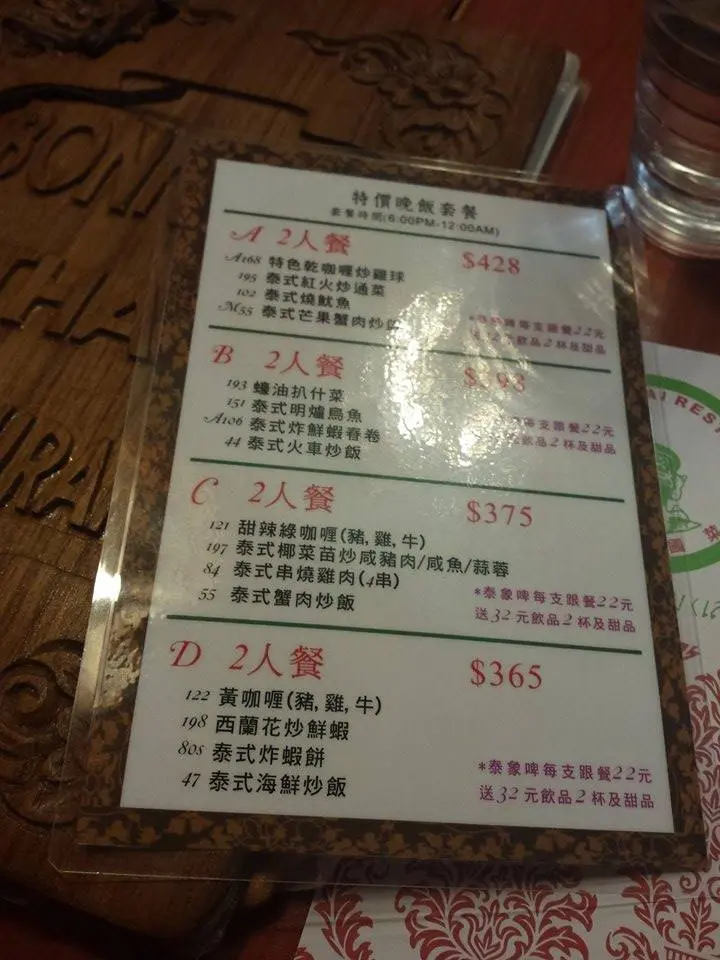 BON
THA
URA
特價晚飯套餐
套餐時間(6:00PM-12:00AM)
A 2人餐 $428
A168 特色乾咖喱炒雞球
195 泰式紅火炒通菜
102 泰式燒魷魚
M55 泰式芒果蟹肉炒
每支跟餐22元
元飲品2杯及甜品
B 2人餐
193 蠔油扒什菜
151 泰式明爐烏魚
A106 泰式炸鮮蝦春卷
44 泰式火車炒飯
每支跟餐22元
飲品2杯及甜品
C 2人餐 $375
121 甜辣綠咖喱(豬,雞,牛)
197 泰式椰菜苗炒咸豬肉/咸魚/蒜蓉
84 泰式串燒雞肉(4串)
55 泰式蟹肉炒飯
*泰象啤每支跟餐22元
送32元飲品2杯及甜品
D 2人餐 $365
122 黃咖喱(豬,雞,牛)
198 西蘭花炒鮮蝦
80s 泰式炸蝦餅
47 泰式海鮮炒飯
*泰象啤每支跟餐22元
送32元飲品2杯及甜品
AI REST
國 菜